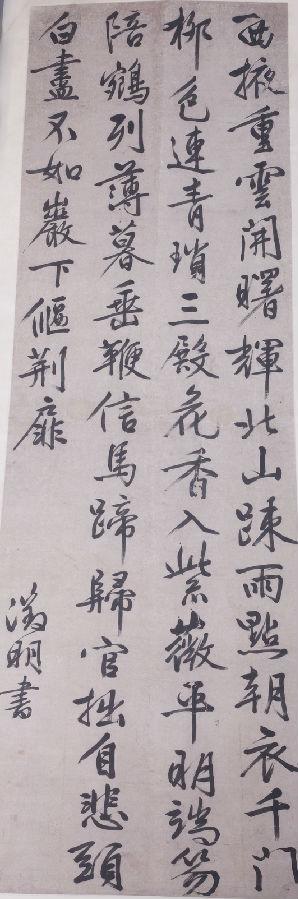 西掖重雲開曙輝北山疎雨點朝衣千門
柳色連青瑣三殿花香入紫薇平明端笏
陪鵷列薄暮垂鞭信馬蹄歸官拙自悲頭
白盡不如巖下偃荆扉
徵明書